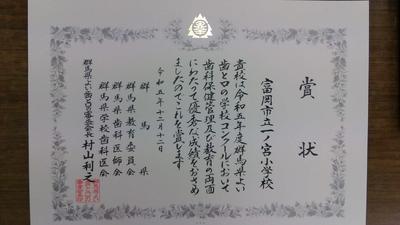 賞状
富岡市立一ノ宮小学校
貴校は令和五年度群馬県よい
歯と口の学校コンクールにおいて
歯科保健管理及び教育の両面
にわたって優秀な成績をおさめ
ましたのでこれを賞します
令和五年十二月十二日
群馬県
群馬県教育委員会
群馬県歯科医師会
群馬県学校歯科医会
群馬県よい歯と口の審査会長 村山利之